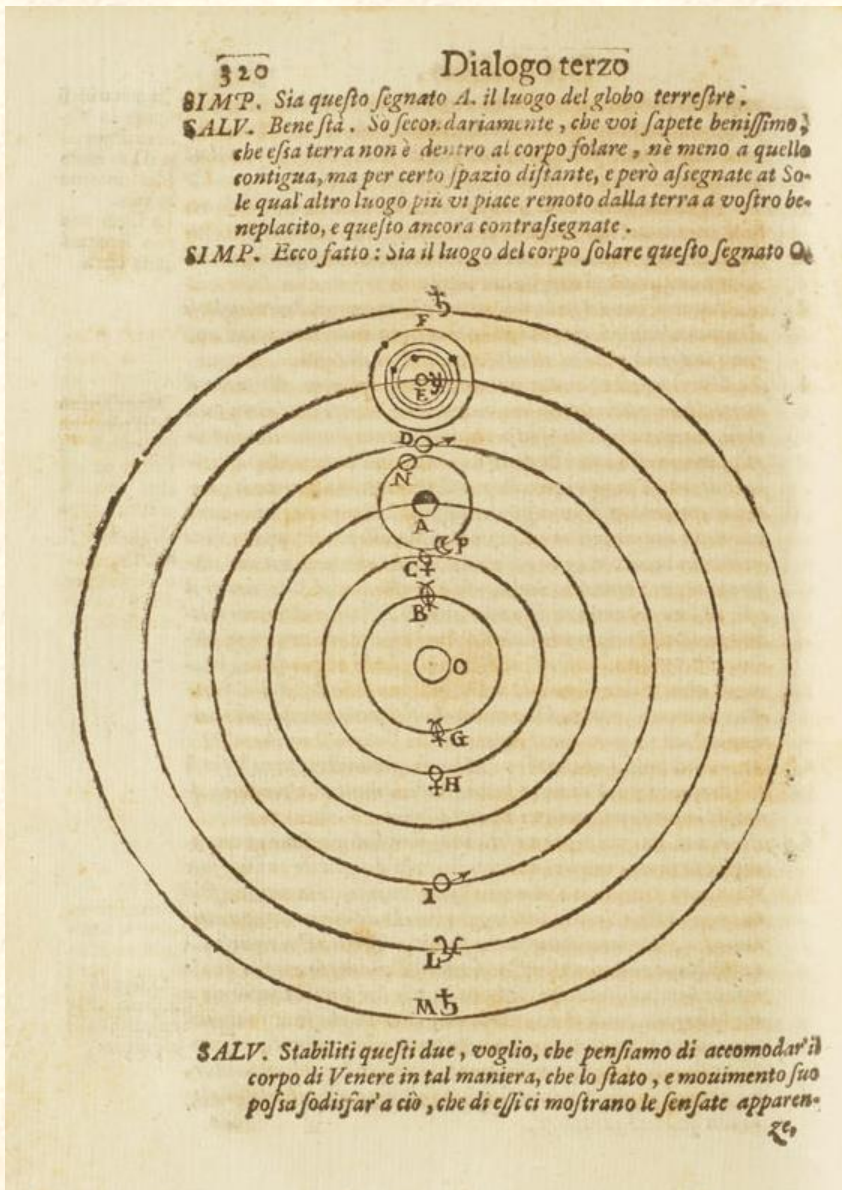 320 Dialogo terzo
SIMP. Sia queſto ſegnato A. il luogo del globo terreſtre.
SALV. Bene ſtà. So ſecondariamente, che voi ſapete beniſſimo,
che eſsa terra non è dentro al corpo ſolare, nè meno a quello
contigua, ma per certo ſpazio diſtante, e però aſsegnate al So-
le qual'altro luogo più vi piace remoto dalla terra a voſtro be-
neplacito, e queſto ancora contraſsegnate.
SIMP. Ecco fatto: Sia il luogo del corpo ſolare queſto ſegnato O.
♄
F
♃
E
D ♂
N
A
☾ P
C ♀
☿
B
O
☿ G
♀ H
I ♂
L ♃
M ♄
SALV. Stabiliti queſti due, voglio, che penſiamo di accomodar'il
corpo di Venere in tal maniera, che lo ſtato, e mouimento ſuo
poſsa ſodisfar'a ciò, che di eſſi ci moſtrano le ſenſate apparen-
ze,